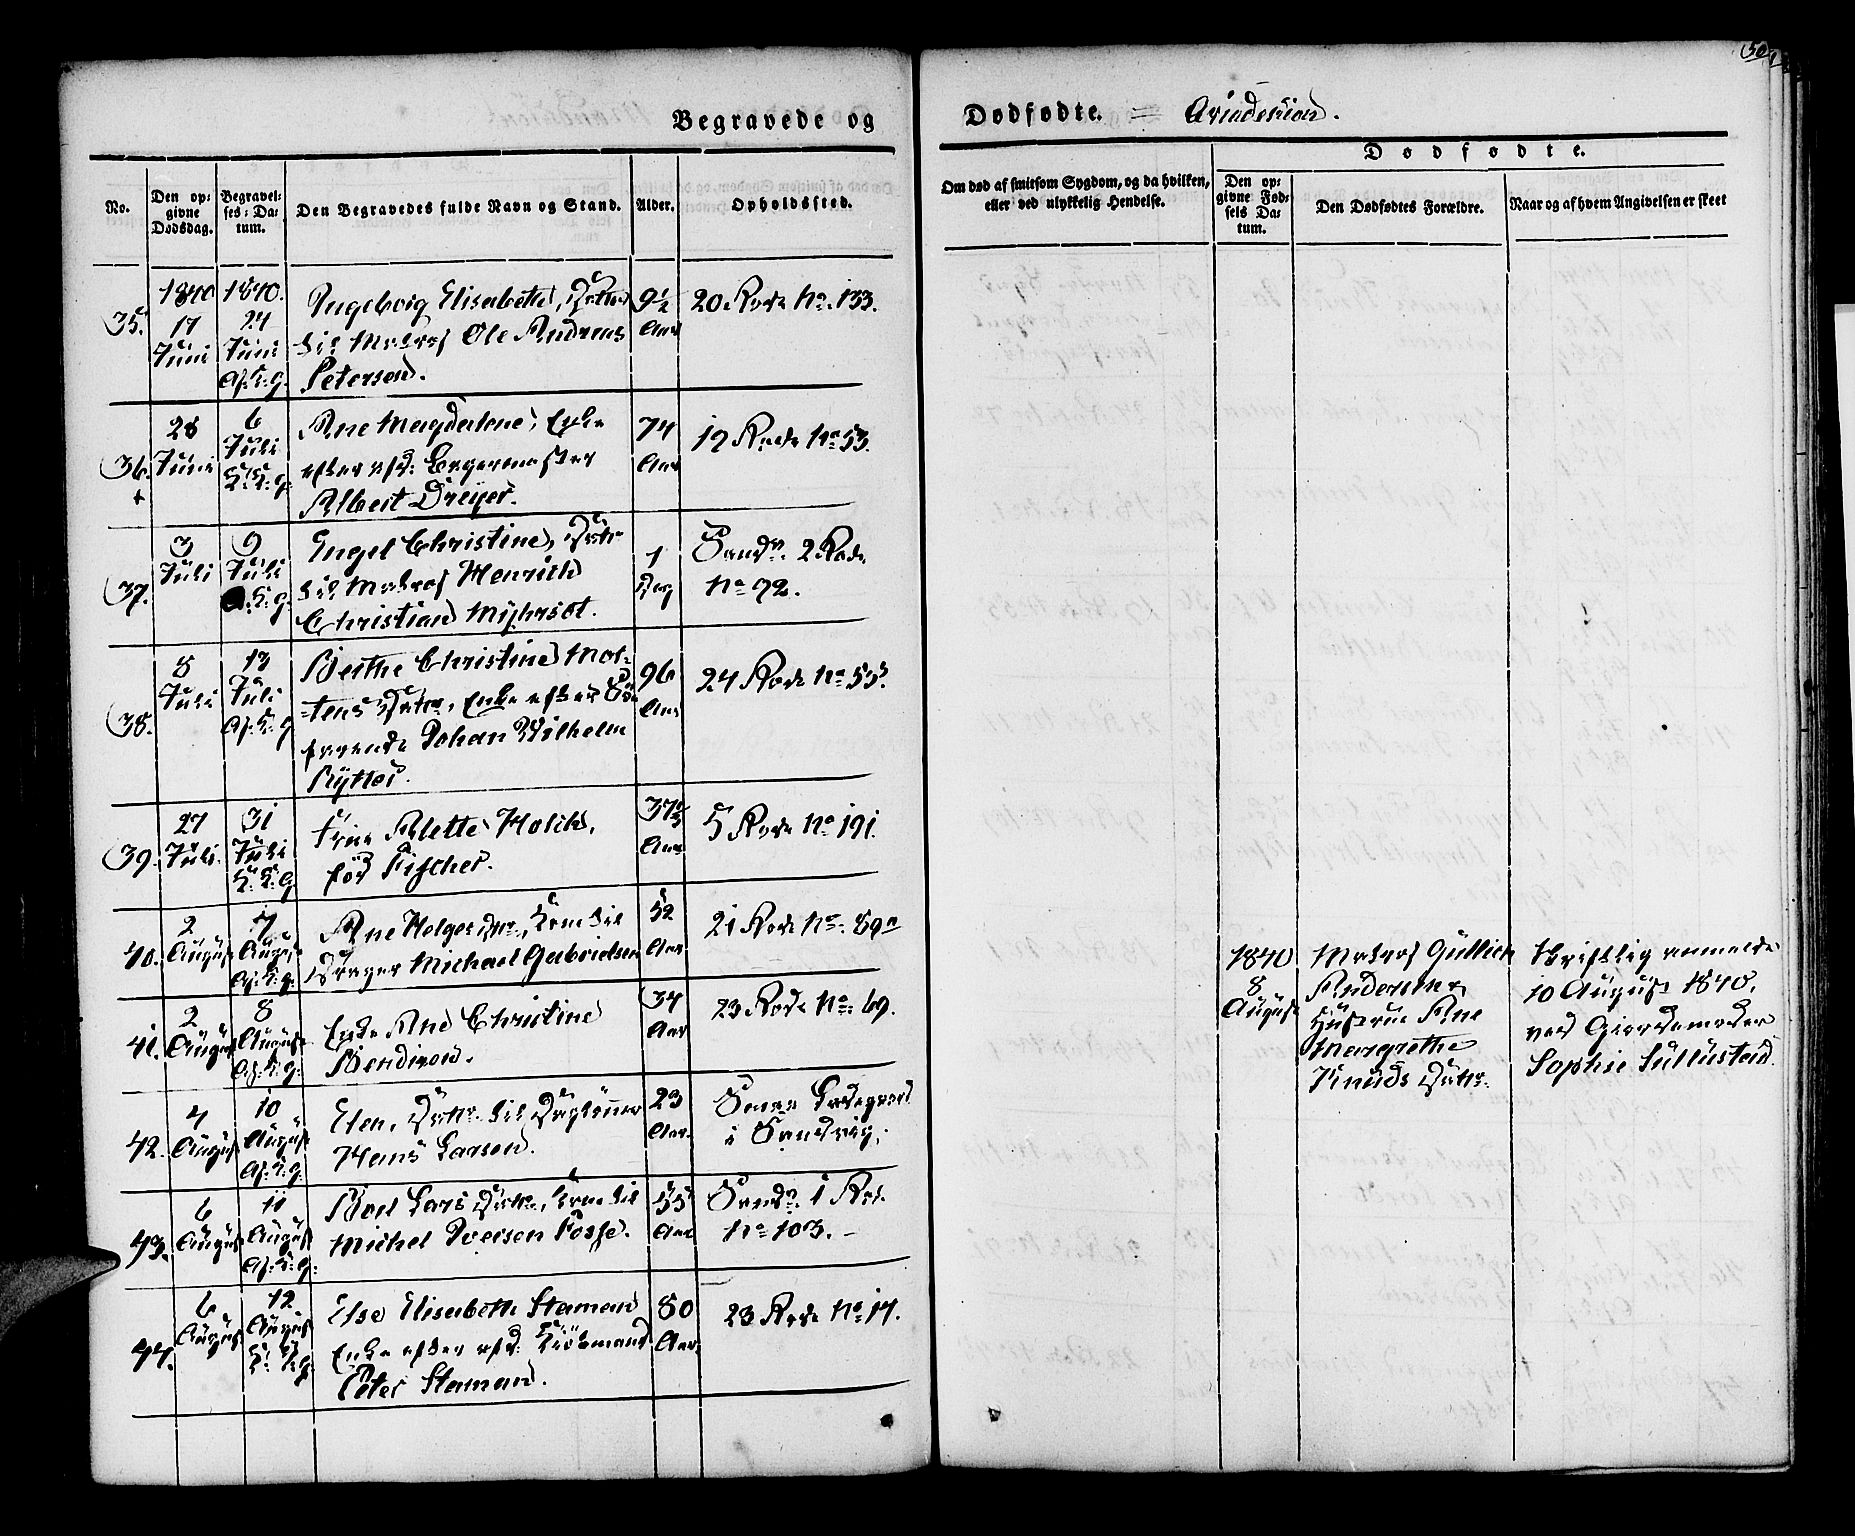 50
Begravede og
Dødfødte. = Qvindekiøn.
No.
Den opgivne Dødsdag.
Begravelses-Datum.
Den Begravedes fulde Navn og Stand.
Alder.
Opholdssted.
Om død af smitsom Sygdom, og da hvilken, eller ved ulykkelig Hendelse.
Dødfødte.
Den opgivne Fødsels Datum.
Den Dødfødtes Forældre.
Naar og af hvem Angivelsen er skeet
35.
1840
17
Juni
1840.
24
Juni
Af: K: g.
Ingeborg Elisabeth, Datter
til Matros Ole Andreas
Petersen.
9½
Aar
20 Rode No. 133.
36.
+
28
Juni
6
Juli
K: K: g.
Ane Magdalene, Enke
efter afd:
Albert Dreyer.
74
Aar
12 Rode No 53.
37.
3
Juli
9
Juli
K: g.
Engel Christine, Datr
til Matros Henrich
Christian Myhrsøt.
1
Dag
Sandv. 2 Rode
No 92.
38.
8
Juli
13
Juli
Af: K: g
Berthe Christine Mor-
=tens Datr, Enke efter Sø-
farende Johan Wilhelm
Rytter.
96
Aar
24 Rode No 55.
39.
27
Juli.
31
Juli
K: K: g
Frue Alette Holck,
fød Fischer.
37
Aar
5 Rode No 191.
40.
2
August
7
August
Af: K: g.
Ane Helges Dtr, Kone til
Drager Michael Gabrielsen
52
Aar
21 Rode No: 89a
41.
2
August
8
August
Af: K: g.
Enke Ane Christine
Bendixen.
34
Aar
23 Rode No: 69.
42.
4
August
10
August
Af: K: g.
Elen, Datr til Dagleiner
Hans Larsen.
23
Aar.
Ladegaard
i Sandvig.
43.
6
August
11
August
Af: K: g:
Boel Lars Datr, Kone til
Michel Iversen Fosse.
55
Aar
Sandv. 1 Rod.
No 103. -
44.
6
August
12
August
K: K: g
Else Elisabeth Staman
Enke efter afd: Kiøbmand
Peter Staman.
80
Aar.
23 Rode No 17.
1840
8
August
Matros Gullich
Andersen
Hustrue Ane
Margrethe
Knuds Datr.
Skriftlig anmeldt
10 August 1840,
ved Giordemoder
Sophie Sullustad.